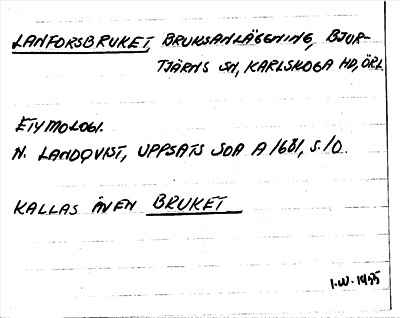 LANFORSBRUKET, BRUKSANLÄGGNING, BJUR-
TJÄRNS SN, KARLSKOGA HD, ÖRL.
ETYMOLOGI.
N. LANDQVIST, UPPSATS SOA A 1681, S. 10.
KALLAS ÄVEN BRUKET
I.W. 1955